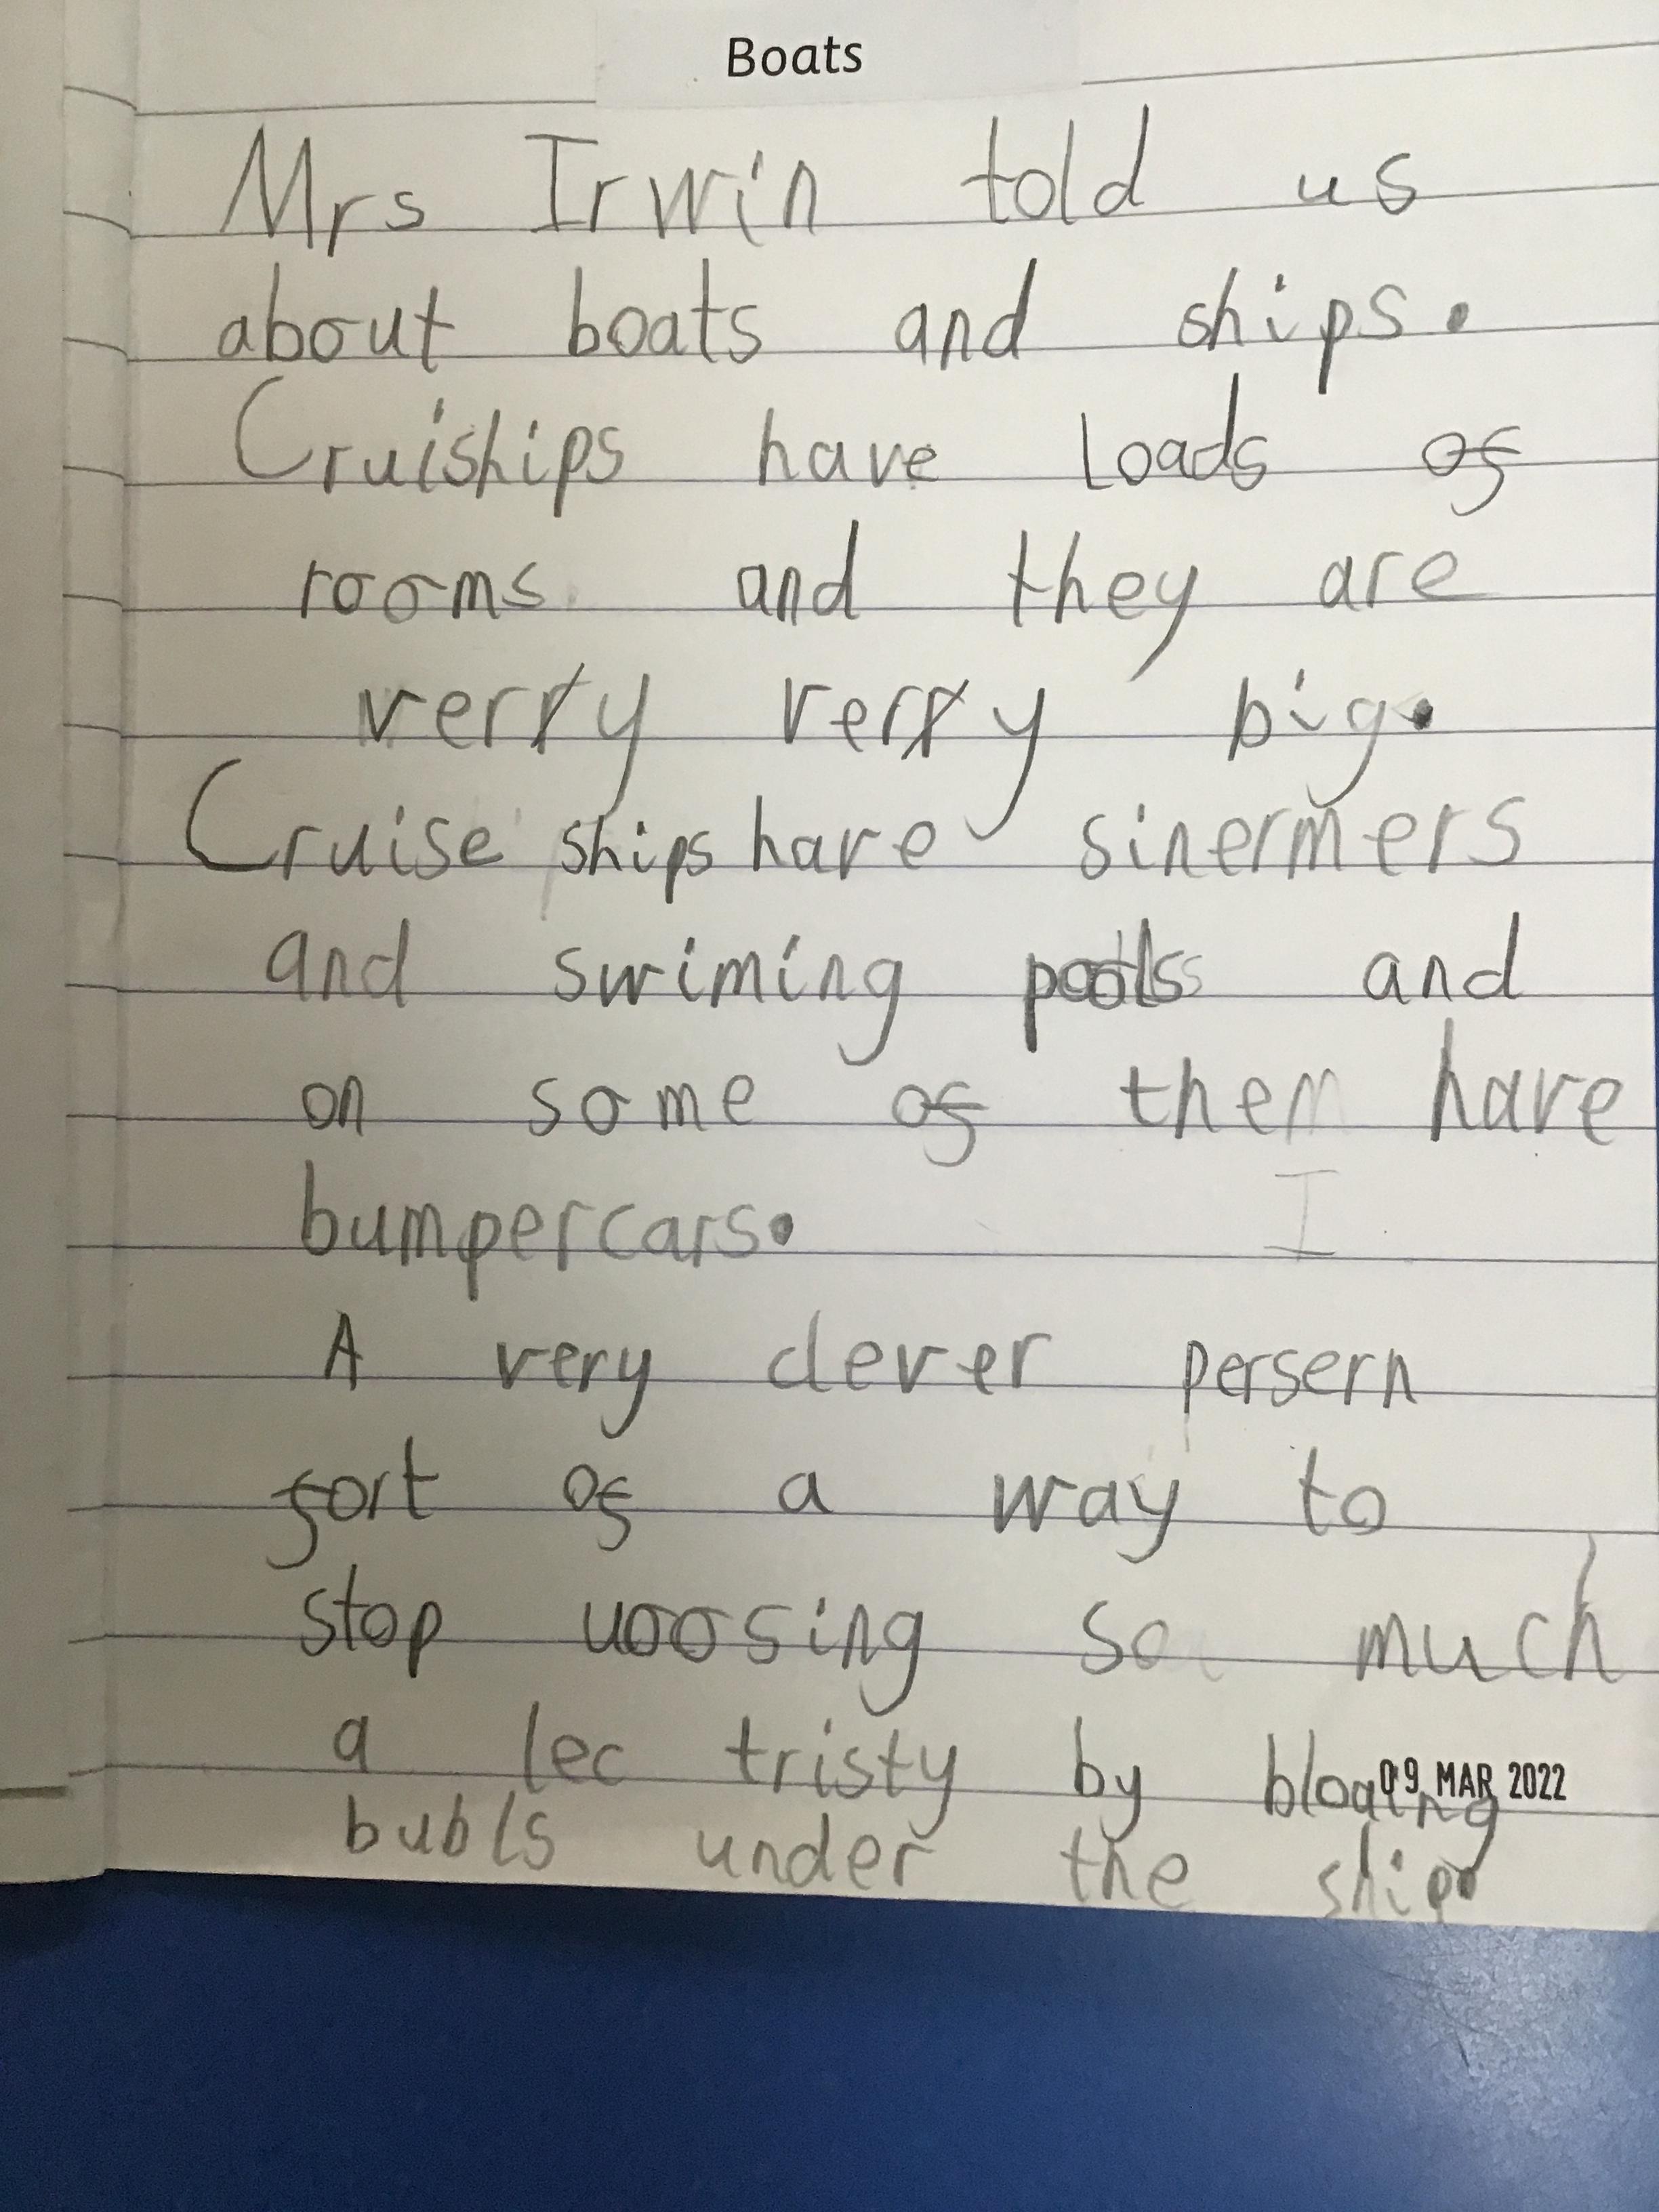 Boats
Mrs Irwin told us
about boats and ships.
Cruiships have Loads of
rooms and they are
verry verry big.
Cruise ships have sinermers
and swiming pools and
on some of them have
bumpercars. I
A very clever persern
fort of a way to
stop uoosing so much
a lec tristy by bloaing
09 MAR 2022
bubls under the ship